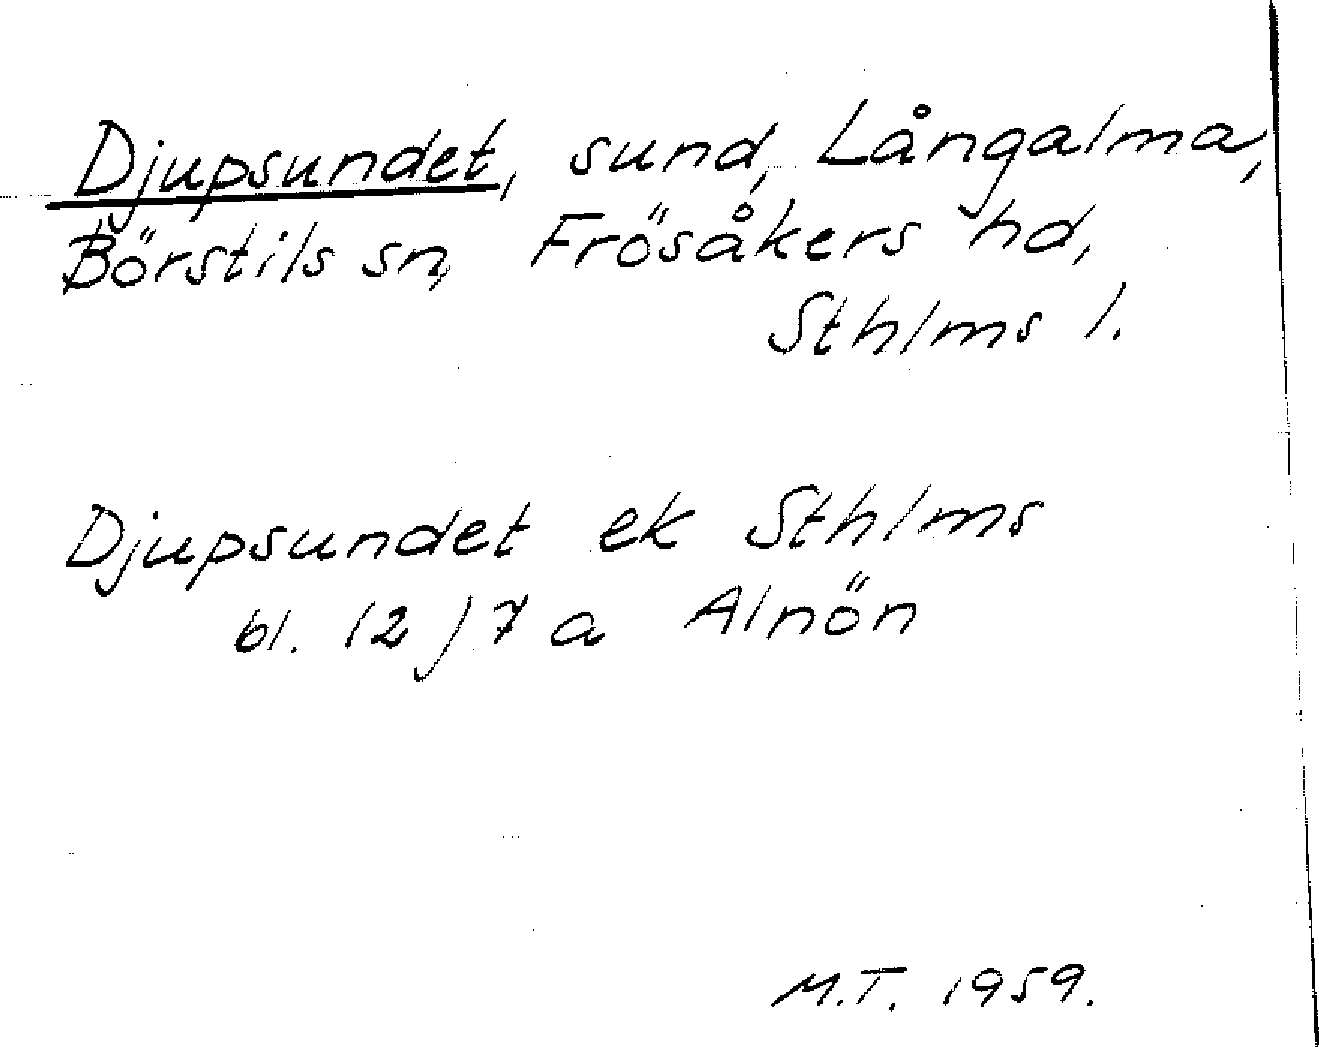 Djupsundet, sund, Långalma,
Börstils sn, Frösåkers hd,
Sthlms l.
Djupsundet ek Sthlms
bl. 12 j 7 a Alnön
M.T. 1959.